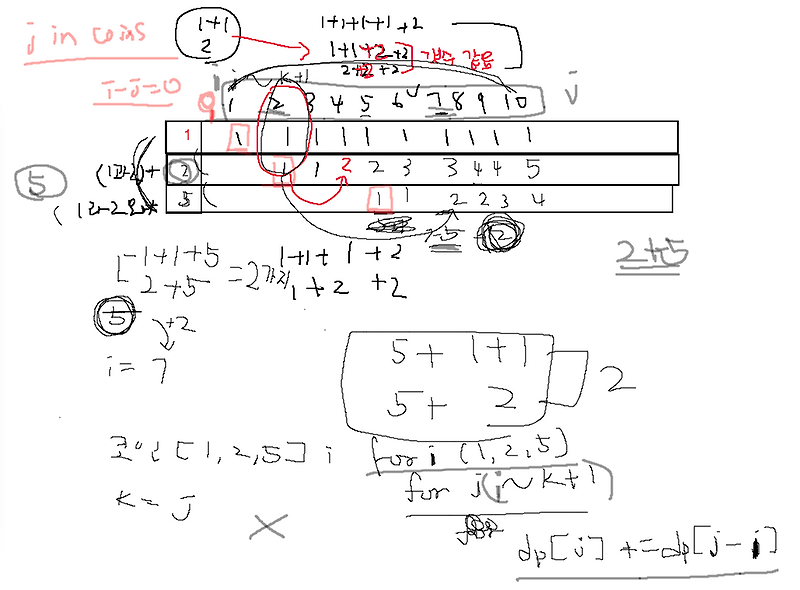 j in coins
i-j=0
1+1
2
1+1+1+1+2
1+1+2+2
2+2+2
개수 같음
i ~ k+1
0 1 2 3 4 5 6 7 8 9 10 j
1 1 1 1 1 1 1 1 1 1 1
2 1 1 2 2 3 3 4 4 5
5 1 1 2 2 3 4
5
-5
2
2+5
1+1+5
2+5
=2가지
1+1+1+2
1+2+2
5
+2
i=7
5+1+1
5+2
2
코인 [1,2,5] i
k=j
for i (1,2,5)
for j(i~k+1)
dp[j] += dp[j-i]